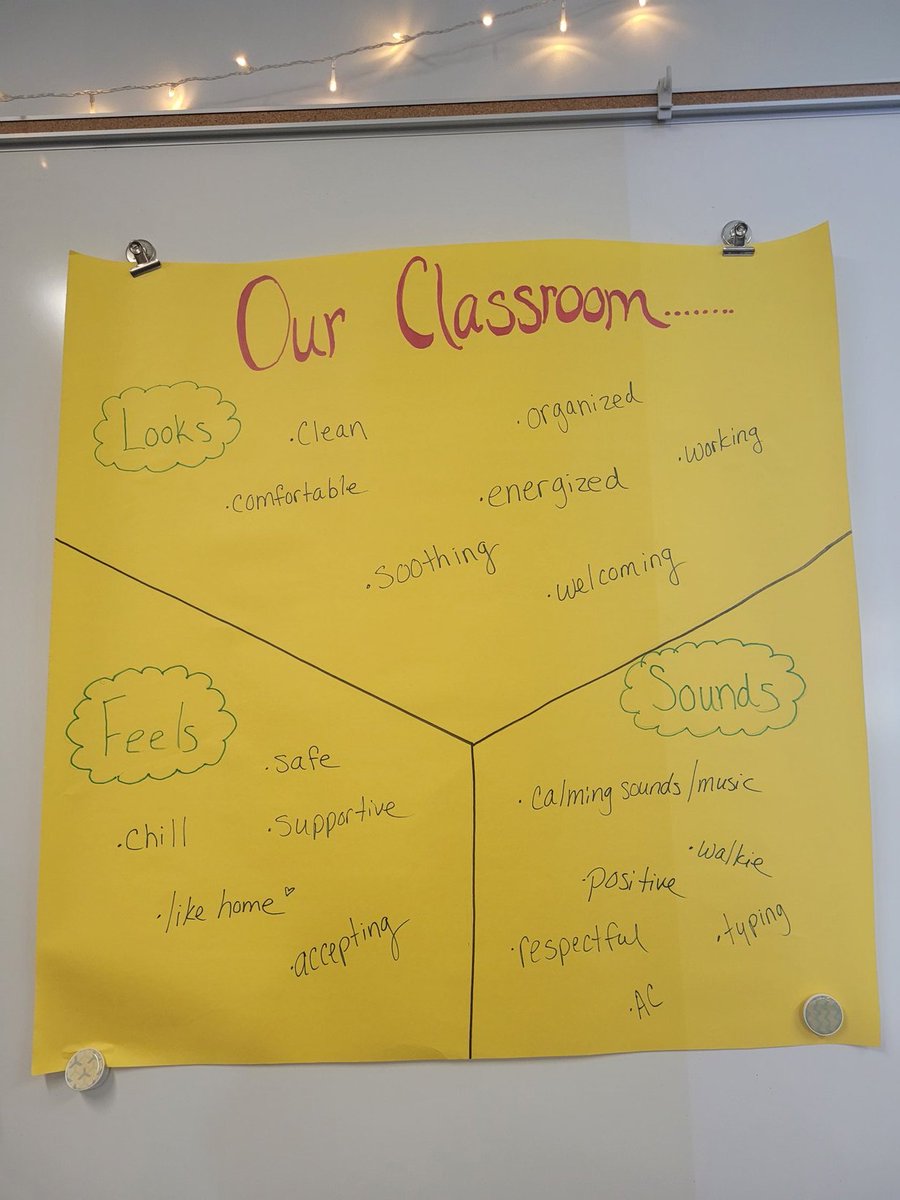 Our Classroom........
Looks
·Clean
·organized
·working
·comfortable
·energized
·soothing
·welcoming
Feels
·safe
·chill
·supportive
·like home♡
·accepting
Sounds
·calming sounds/music
·walkie
·positive
·typing
·respectful
·AC